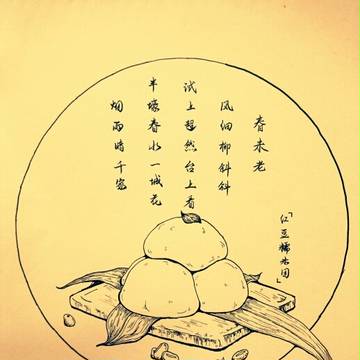 春未老
风细柳斜斜
试上超然台上看
半壕春水一城花
烟雨暗千家
「红豆糯米团」